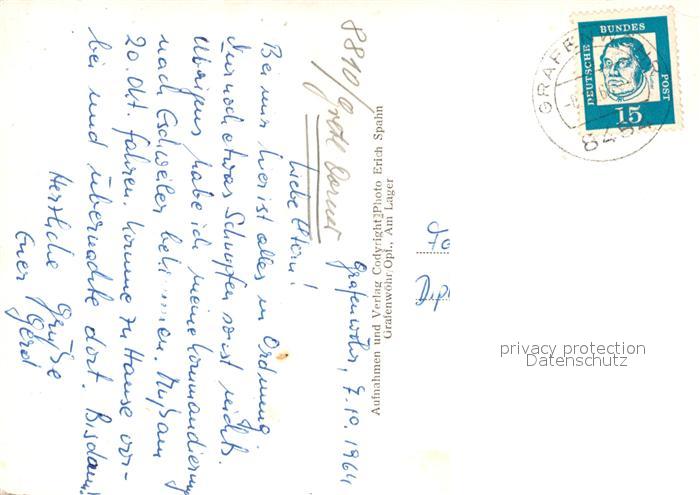 Grafenwöhr, 7.10.1964
Liebe Eltern!
Bei mir hier ist alles in Ordnung
Nur noch etwas Schnupfen sonst nichts.
Übrigens habe ich meine Kommandierung
nach Eschweiler bekommen. Muß am
20. Okt. fahren. Komme zu Hause vor-
bei und übernachte dort. Bis dann!
Herzliche Grüße
Euer Gerd
8810/
Aufnahmen und Verlag Codyright Photo Erich Spahn
Grafenwöhr/Opf., Am Lager
DEUTSCHE BUNDES POST
15
GRAFE
845
Fa
Dipl
privacy protection
Datenschutz